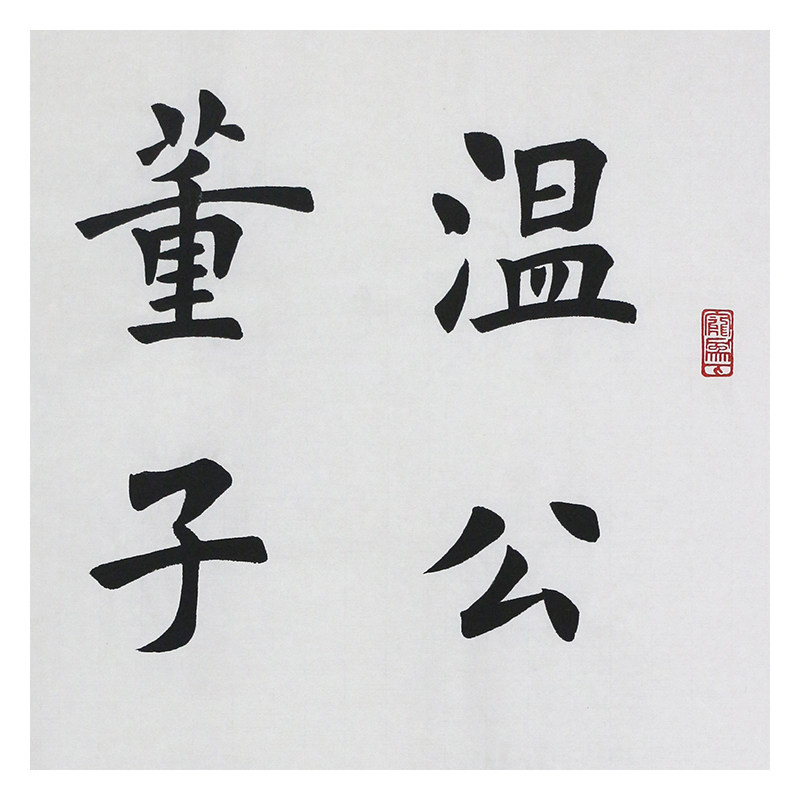 温公
董子